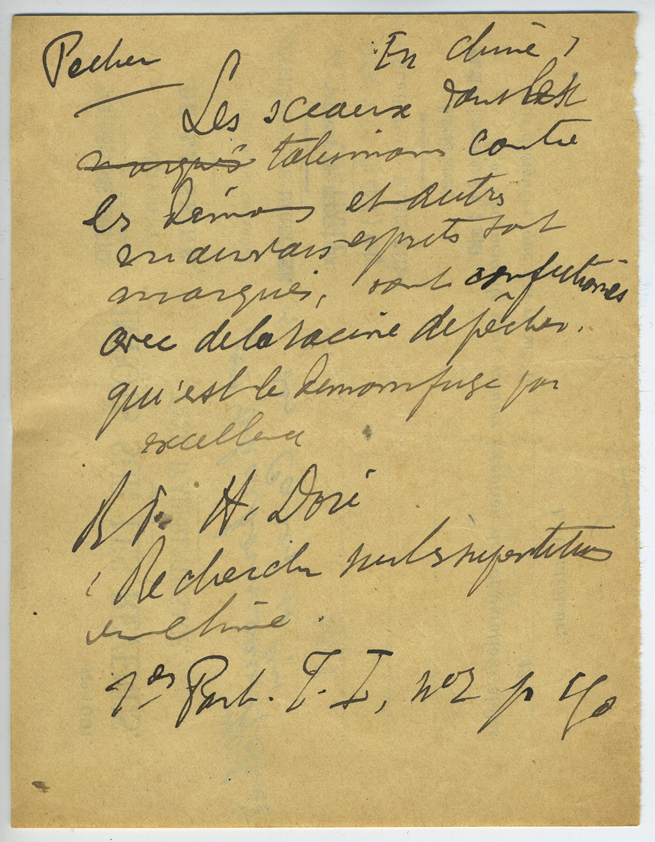 Pecher En Chine,
Les sceaux dont les
marqués talismans contre
les démons et autres
mauvais esprits sont
marqués, sont confectionnés
avec de la racine de pêcher.
qui est le démonifuge par
excellence
R P. H. Doré
Recherches sur les superstitions
en Chine.
1er Part. T. I, nº2 p